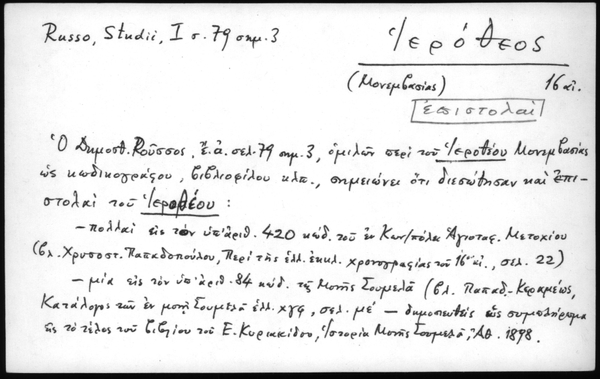 Russo, Studii, I σ. 79 σημ. 3
Ἱερόθεος
(Μονεμβασίας) 16 αἰ.
ἐπιστολαὶ
Ὁ Δημοσθ. Ροῦσσος, ἔ.ἀ. σελ. 79 σημ. 3, ὁμιλῶν περὶ τοῦ Ἱεροθέου Μονεμβασίας
ὡς κωδικογράφου, βιβλιοφίλου κλπ., σημειώνει ὅτι διεσώθησαν καὶ Ἐπι-
στολαὶ τοῦ Ἱεροθέου :
– πολλαὶ εἰς τὸν ὑπ' ἀριθ. 420 κώδ. τοῦ ἐν Κων/πόλει Ἁγιοταφ. Μετοχίου
(βλ. Χρυσοστ. Παπαδοπούλου, Περὶ τῆς ἑλλ. ἐκκλ. χρονογραφίας τοῦ 16 αἰ., σελ. 22)
– μία εἰς τὸν ὑπ' ἀριθ. 84 κώδ. τῆς Μονῆς Σουμελᾶ (βλ. Παπαδ.-Κεραμέως,
Κατάλογος τῶν ἐν μονῇ Σουμελᾶ ἑλλ. χγφ, σελ. με' – δημοσιευθεὶς ὡς συμπλήρωμα
εἰς τὸ τέλος τοῦ βιβλίου τοῦ Ε. Κυριακίδου, Ἱστορία Μονῆς Σουμελᾶ, Ἀθ. 1898.